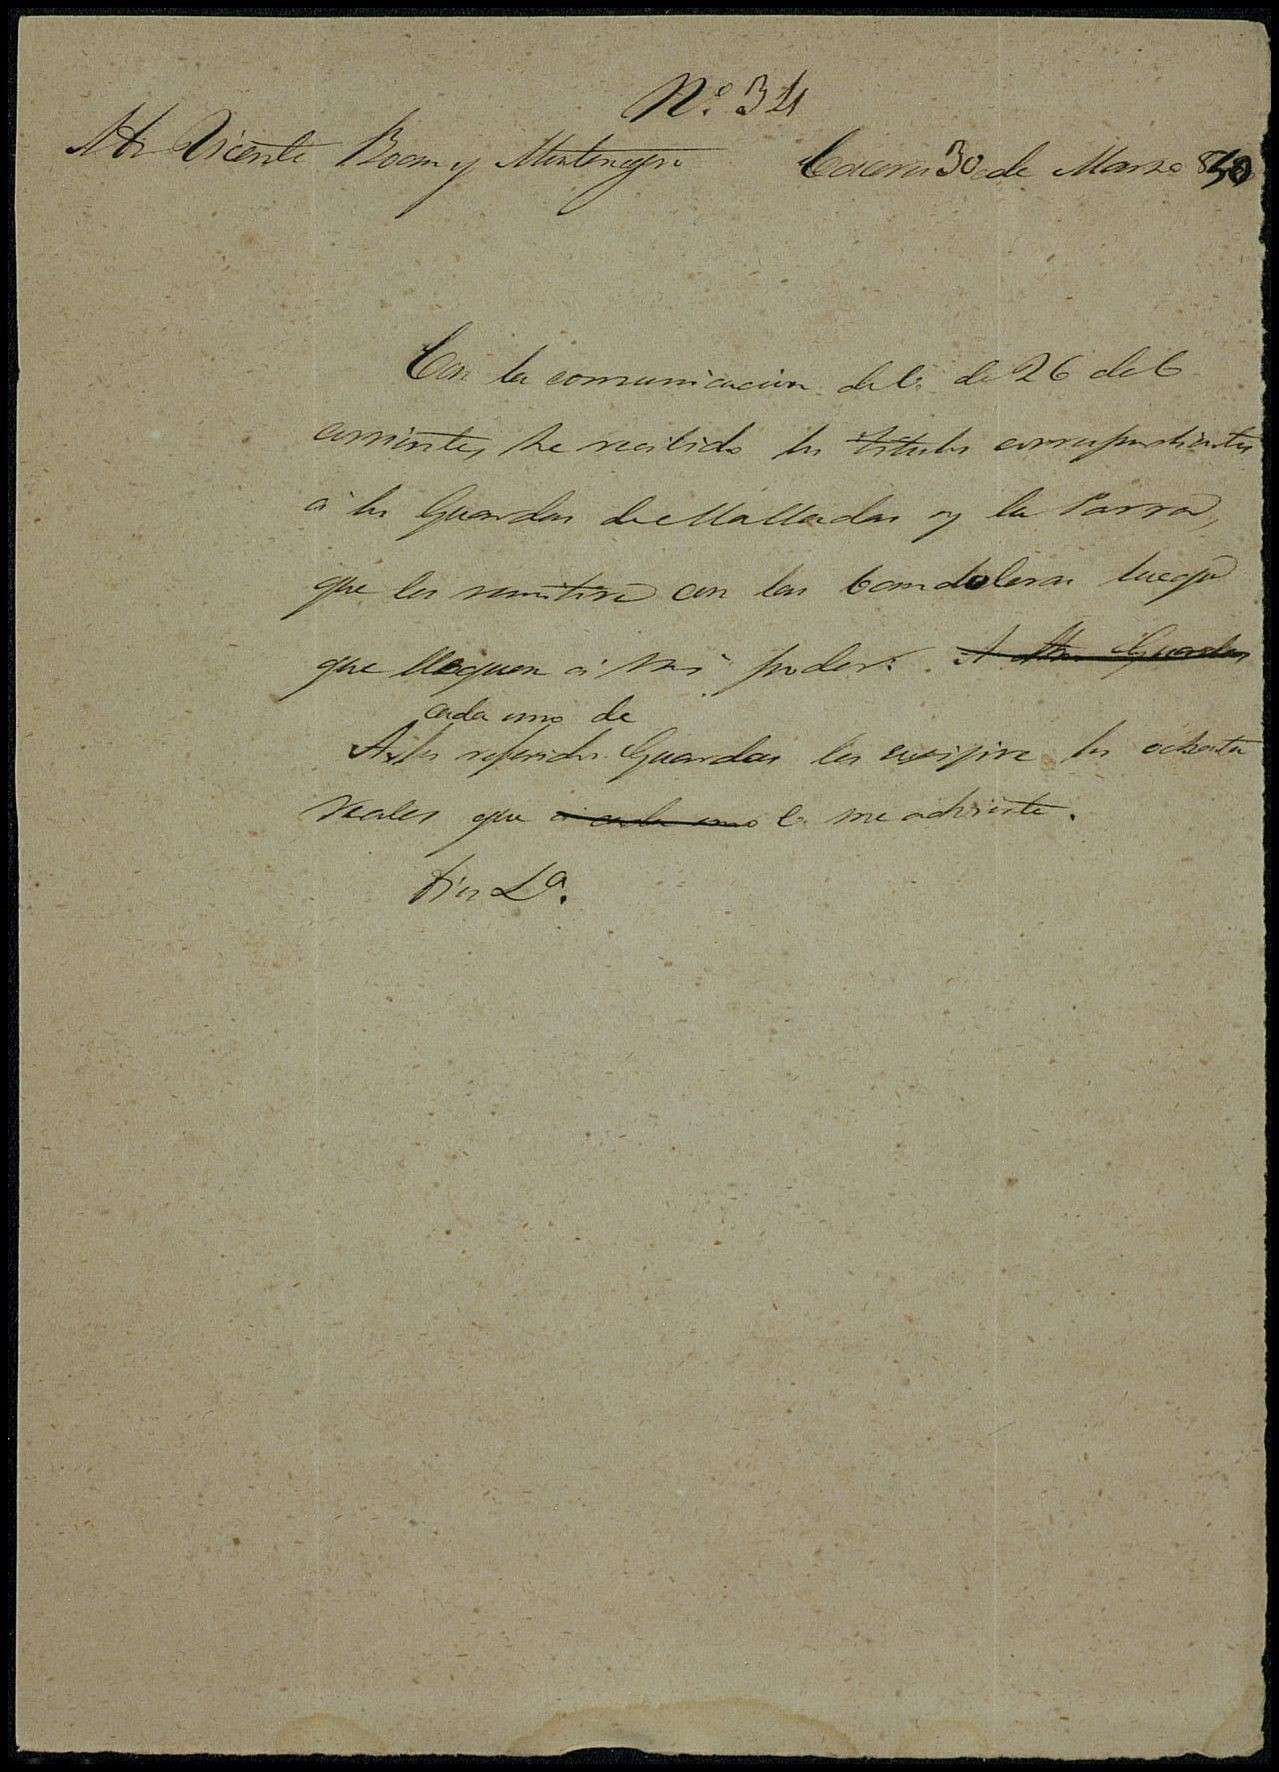 Nº 34
Vicente y Montenegro Caceres 30 de Marzo 850
Con la comunicacion de V. de 26 del
corriente, he recibido los titulos correspondientes
á los Guardas de Malladas y la Parra,
que les remitiré con las bandoleras luego
que lleguen á mi poder. A los Guardas
cada uno de
A los referidos Guardas les exigiré los ochenta
reales que á cada uno V. me advierte.
Dios Lª.